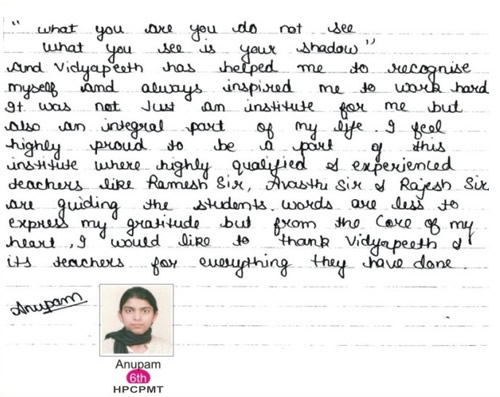 " What you are you do not see
What you see is your shadow"
And Vidyapeeth has helped me to recognise
myself and always inspired me to work hard
It was not Just an institute for me but
also an integral part of my life. I feel
highly proud to be a part of this
institute where highly qualified & experienced
teachers like Ramesh Sir, Avasthi Sir & Rajesh Sir
are guiding the students. words are less to
express my gratitude but from the Core of my
heart, I would like to thank Vidyapeeth &
its teachers for everything they have done.
Anupam
Anupam
6th
HPCPMT